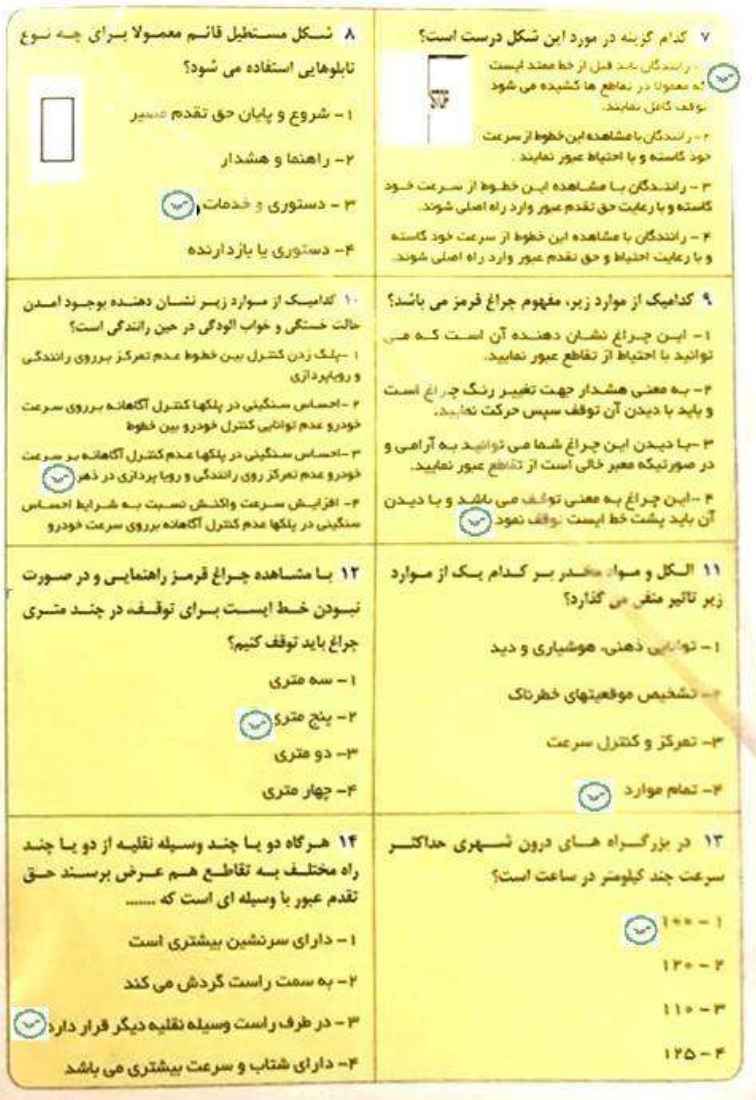 ۷ کدام گزینه در مورد این شکل درست است؟
۱- رانندگان باید قبل از خط ممتد ایست
که معمولا در تقاطع ها کشیده می شود
توقف کامل نمایند.
STOP
۲- رانندگان با مشاهده این خطوط از سرعت
خود کاسته و با احتیاط عبور نمایند.
۳- رانندگان با مشاهده این خطوط از سرعت خود
کاسته و با رعایت حق تقدم عبور وارد راه اصلی شوند.
۴- رانندگان با مشاهده این خطوط از سرعت خود کاسته
و با رعایت احتیاط و حق تقدم عبور وارد راه اصلی شوند.
۸ شکل مستطیل قائم معمولا برای چه نوع
تابلوهایی استفاده می شود؟
۱- شروع و پایان حق تقدم مسیر
۲- راهنما و هشدار
۳- دستوری و خدمات
۴- دستوری یا بازدارنده
۹ کدامیک از موارد زیر، مفهوم چراغ قرمز می باشد؟
۱- این چراغ نشان دهنده آن است که می
توانید با احتیاط از تقاطع عبور نمایید.
۲- به معنی هشدار جهت تغییر رنگ چراغ است
و باید با دیدن آن توقف سپس حرکت نمایید.
۳- با دیدن این چراغ شما می توانید به آرامی و
در صورتیکه معبر خالی است از تقاطع عبور نمایید.
۴- این چراغ به معنی توقف می باشد و با دیدن
آن باید پشت خط ایست توقف نمود
۱۰ کدامیک از موارد زیر نشان دهنده بوجود آمدن
حالت خستگی و خواب آلودگی در حین رانندگی است؟
۱- پلک زدن کنترل بین خطوط عدم تمرکز برروی رانندگی
و رویاپردازی
۲- احساس سنگینی در پلکها کنترل آگاهانه برروی سرعت
خودرو عدم توانایی کنترل خودرو بین خطوط
۳- احساس سنگینی در پلکها عدم کنترل آگاهانه بر سرعت
خودرو عدم تمرکز روی رانندگی و رویا پردازی در ذهن
۴- افزایش سرعت واکنش نسبت به شرایط احساس
سنگینی در پلکها عدم کنترل آگاهانه برروی سرعت خودرو
۱۱ الکل و مواد مخدر بر کدام یک از موارد
زیر تاثیر منفی می گذارد؟
۱- توانایی ذهنی، هوشیاری و دید
۲- تشخیص موقعیتهای خطرناک
۳- تمرکز و کنترل سرعت
۴- تمام موارد
۱۲ با مشاهده چراغ قرمز راهنمایی و در صورت
نبودن خط ایست برای توقف، در چند متری
چراغ باید توقف کنیم؟
۱- سه متری
۲- پنج متری
۳- دو متری
۴- چهار متری
۱۳ در بزرگراه های درون شهری حداکثر
سرعت چند کیلومتر در ساعت است؟
۱- ۱۰۰
۲- ۱۲۰
۳- ۱۱۰
۴- ۱۲۵
۱۴ هرگاه دو یا چند وسیله نقلیه از دو یا چند
راه مختلف به تقاطع هم عرض برسند حق
تقدم عبور با وسیله ای است که .......
۱- دارای سرنشین بیشتری است
۲- به سمت راست گردش می کند
۳- در طرف راست وسیله نقلیه دیگر قرار دارد
۴- دارای شتاب و سرعت بیشتری می باشد